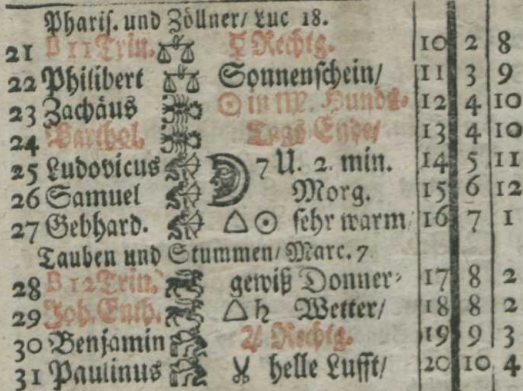 Pharis. und Zöllner/ Luc 18.
21 B 11 Trin. ☿ Rechtg. 10 2 8
22 Philibert Sonnenschein/ 11 3 9
23 Zachäus ☉ in ♍. Hunds- 12 4 10
24 Barthol. Tags Ende/ 13 4 10
25 Ludovicus 7 U. 2. min. 14 5 11
26 Samuel Morg. 15 6 12
27 Gebhard. △ ☉ sehr warm/ 16 7 1
Tauben und Stummen/ Marc. 7
28 B 12 Trin. gewiß Donner- 17 8 2
29 Joh. Enth. △ ♄ Wetter/ 18 8 2
30 Benjamin ♃ Rechtg. 19 9 3
31 Paulinus helle Lufft/ 20 10 4